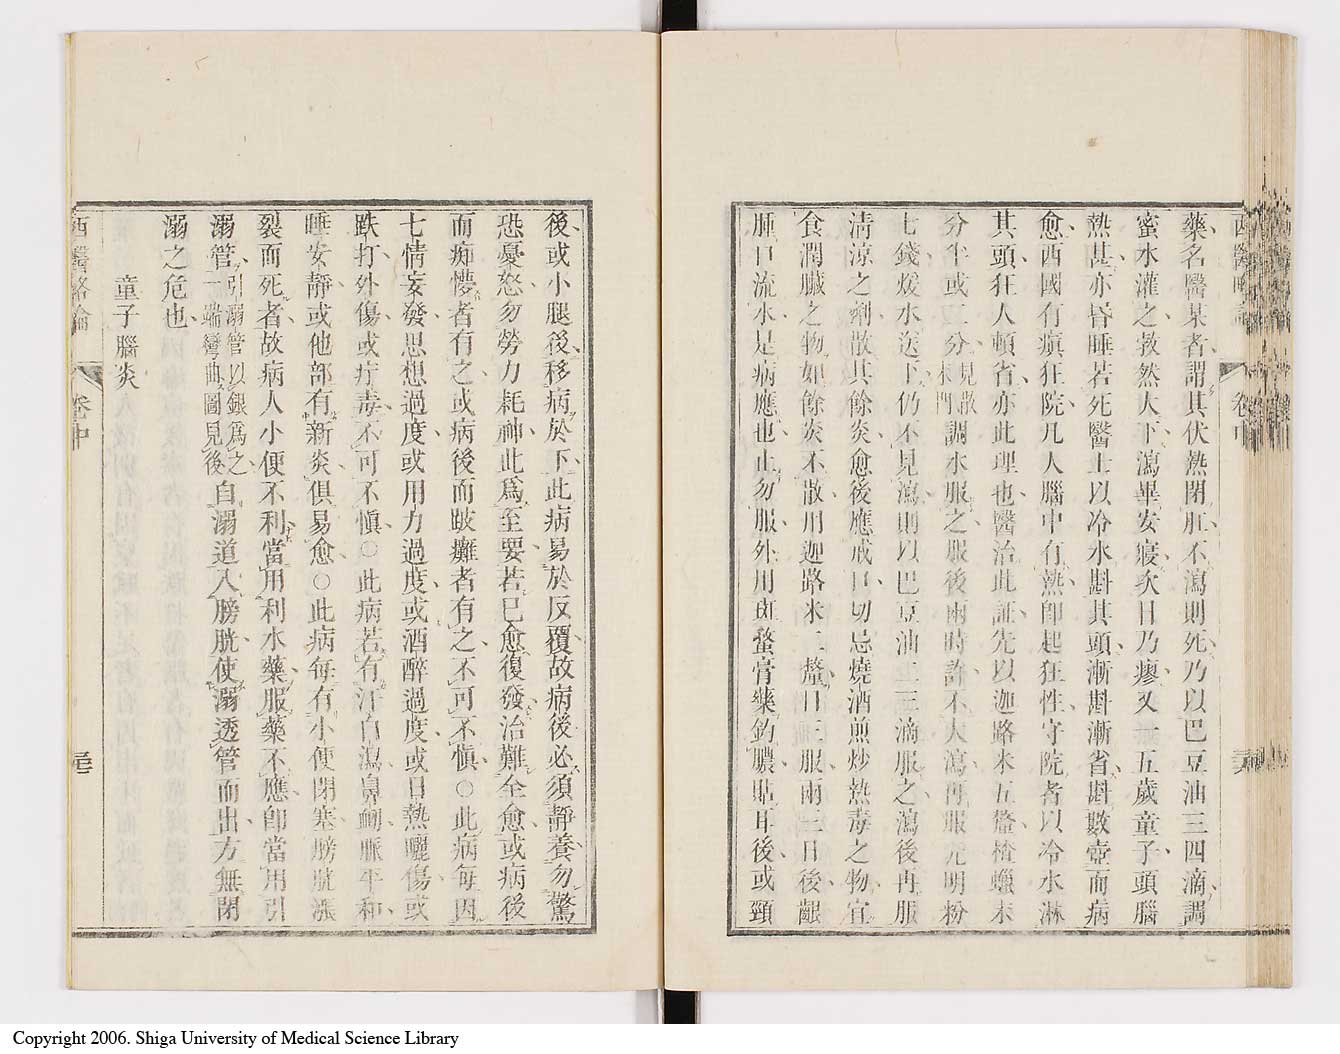 藥名醫某者謂其伏熱閉肛不瀉則死乃以巴豆油三四滴調
蜜水灌之救然大下瀉畢安寢次日乃瘳又五歲童子頭腦
熱甚亦昏睡若死醫士以冷水斟其頭漸斟漸省斟數壺而病
愈西國有癲狂院凡人腦中有熱卽起狂性守院者以冷水淋
其頭狂人頓省亦此理也醫治此証先以迦路米五釐楂蠟末
分半或二分見散末門調水服之服後兩時許不大瀉再服元明粉
七錢煖水送下仍不見瀉則以巴豆油二三滴服之瀉後再服
淸涼之劑散其餘炎愈後應戒口切忌燒酒煎炒熱毒之物宜
食潤臟之物如餘炎不散用迦路米二釐日三服兩三日後齦
腫口流水是病應也止勿服外用斑蝥膏藥釣膿貼耳後或頸
西醫略論
卷中
後或小腿後移病於下此病易於反覆故病後必須靜養勿驚
恐憂怒勿勞力耗神此爲至要若已愈復發治難全愈或病後
而痴懜者有之或病後而跛癱者有之不可不愼○此病每因
七情妄發思想過度或用力過度或酒醉過度或日熱曬傷或
跌打外傷或疔毒不可不愼○此病若有汗自瀉鼻衄脈平和
睡安靜或他部有新炎俱易愈○此病每有小便閉塞膀胱漲
裂而死者故病人小便不利當用利水藥服藥不應卽當用引
溺管引溺管以銀爲之一端彎曲圖見後自溺道入膀胱使溺透管而出方無閉
溺之危也
童子腦炎
西醫略論
卷中
Copyright 2006. Shiga University of Medical Science Library